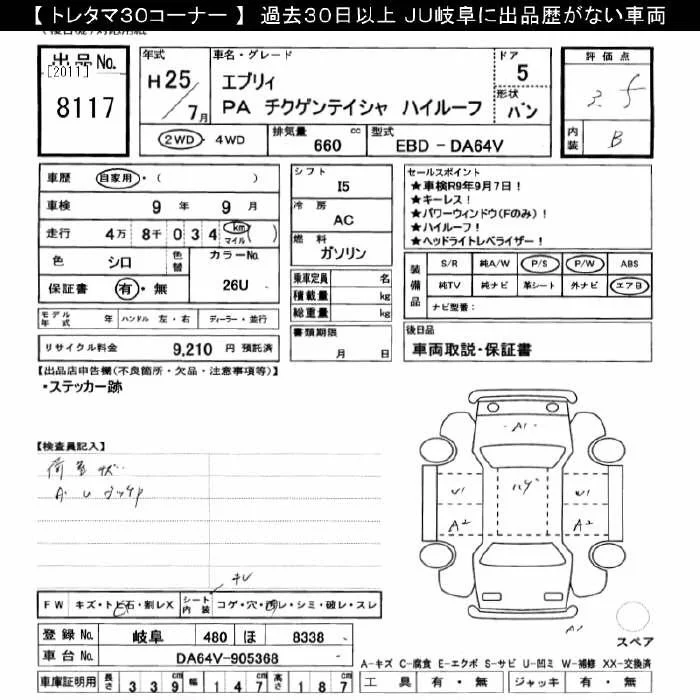 【トレタマ30コーナー】 過去30日以上 JU岐阜に出品歴がない車両
出品No.
[2011]
8117
年式
H25/7月
車名・グレード
エブリィ
PA チクゲンテイシャ ハイルーフ
ドア
5
形状
バン
評価点
3.5
内装
B
2WD・4WD
排気量
660 cc
型式
EBD-DA64V
車歴 自家用・( )
車検 9年 9月
走行 4万 8千 0 3 4 km マイル
色 シロ
色替
カラーNo.
26U
保証書 有・無
シフト
I5
冷房
AC
燃料
ガソリン
乗車定員 名
積載量 kg
総重量 kg
書類期限
月 日
セールスポイント
★車検R9年9月7日！
★キーレス！
★パワーウィンドウ(Fのみ)！
★ハイルーフ！
★ヘッドライトレベライザー！
装備品
S/R 純A/W P/S P/W ABS
純TV 純ナビ 革シート 外ナビ エアB
ナビ型番：
モデル年式 年 ハンドル 左・右 ディーラー・並行
リサイクル料金 9,210 円 預託済
後日品
車両取説・保証書
【出品店申告欄(不良箇所・欠品・注意事項等)】
・ステッカー跡
【検査員記入】
A・U
A1
U1
U1
A2
A2
A1
スペア
FW キズ・トビ石・割レX
シート内装 コゲ・穴・汚レ・シミ・破レ・スレ
登録No. 岐阜 480 ほ 8338
車台No. DA64V-905368
車庫証明用 長さ 339cm 幅 147cm 高さ 187cm
A-キズ C-腐食 E-エクボ S-サビ U-凹ミ W-補修 XX-交換済
工具 有・無 ジャッキ 有・無